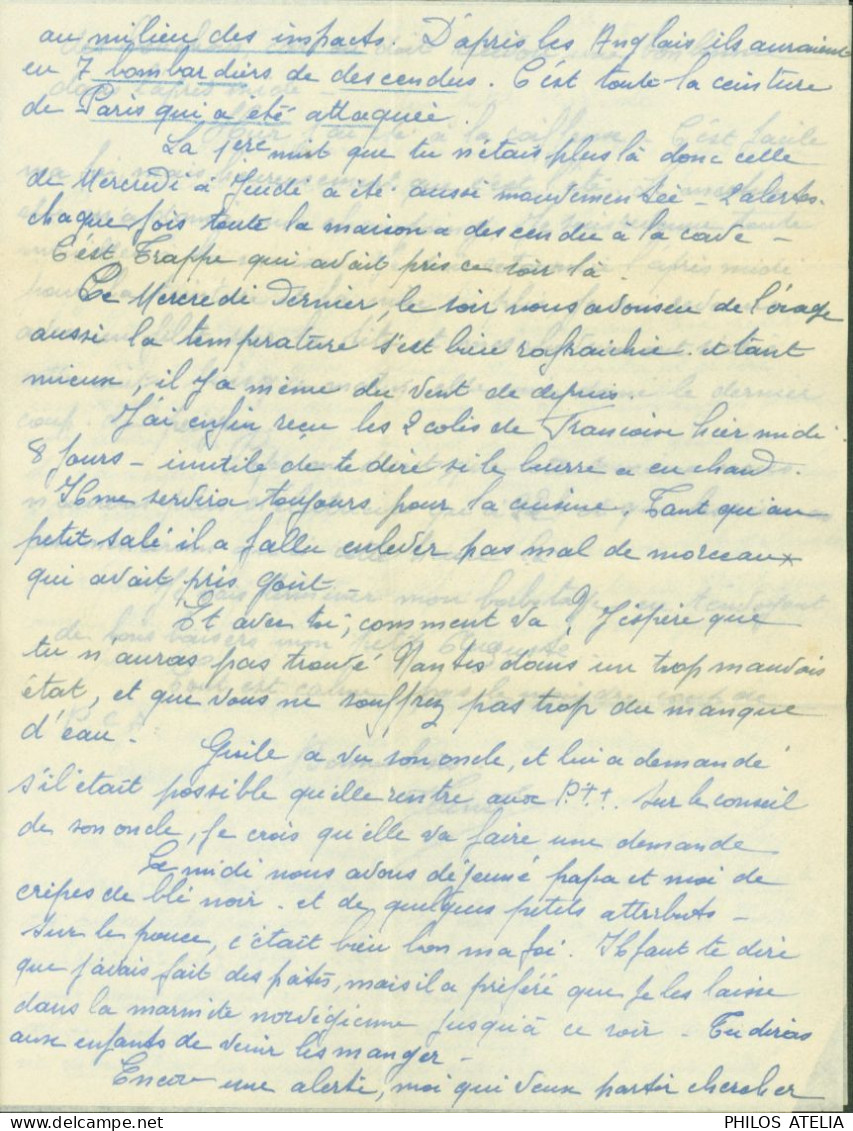 au milieu des impacts. D'après les Anglais ils auraient
eu 7 bombardiers de descendus. C'est toute la ceinture
de Paris qui a été attaquée.
La 1ere nuit que tu n'étais plus là donc celle
de Mercredi à Jeudi a été aussi mouvementée - 2 alertes.
chaque fois toute la maison a descendu à la cave -
C'est Trappe qui avait pris ce soir là
Le Mercredi dernier, le soir nous avons eu de l'orage
aussi la température s'est bien rafraichie. et tant
mieux, il y a même du vent de depuis.
J'ai enfin reçu les 2 colis de Francoise hier midi.
8 jours - inutile de te dire si le beurre a eu chaud.
Il me servira toujours pour la cuisine. Tant qu'au
petit salé il a fallu enlever pas mal de morceaux
qui avait pris goût -
Et avec toi, comment va ? J'espère que
tu n'auras pas trouvé Nantes dans un trop mauvais
état, et que vous ne souffrez pas trop du manque
d'eau. Guile a vu son oncle, et lui a demandé
s'il était possible qu'elle rentre aux P.T.T. Sur le conseil
de son oncle, je crois qu'elle va faire une demande
Ce midi nous avons déjeuné papa et moi de
crêpes de blé noir. et de quelques petits attributs -
Sur le pouce, c'était bien bon ma foi. Il faut te dire
que j'avais fait des pâtés, mais il a préféré que je les laisse
dans la marmite norvégienne jusqu'à ce soir - Tu diras
aux enfants de venir les manger -
Encore une alerte, moi qui veux partir chercher
PHILOS ATELIA